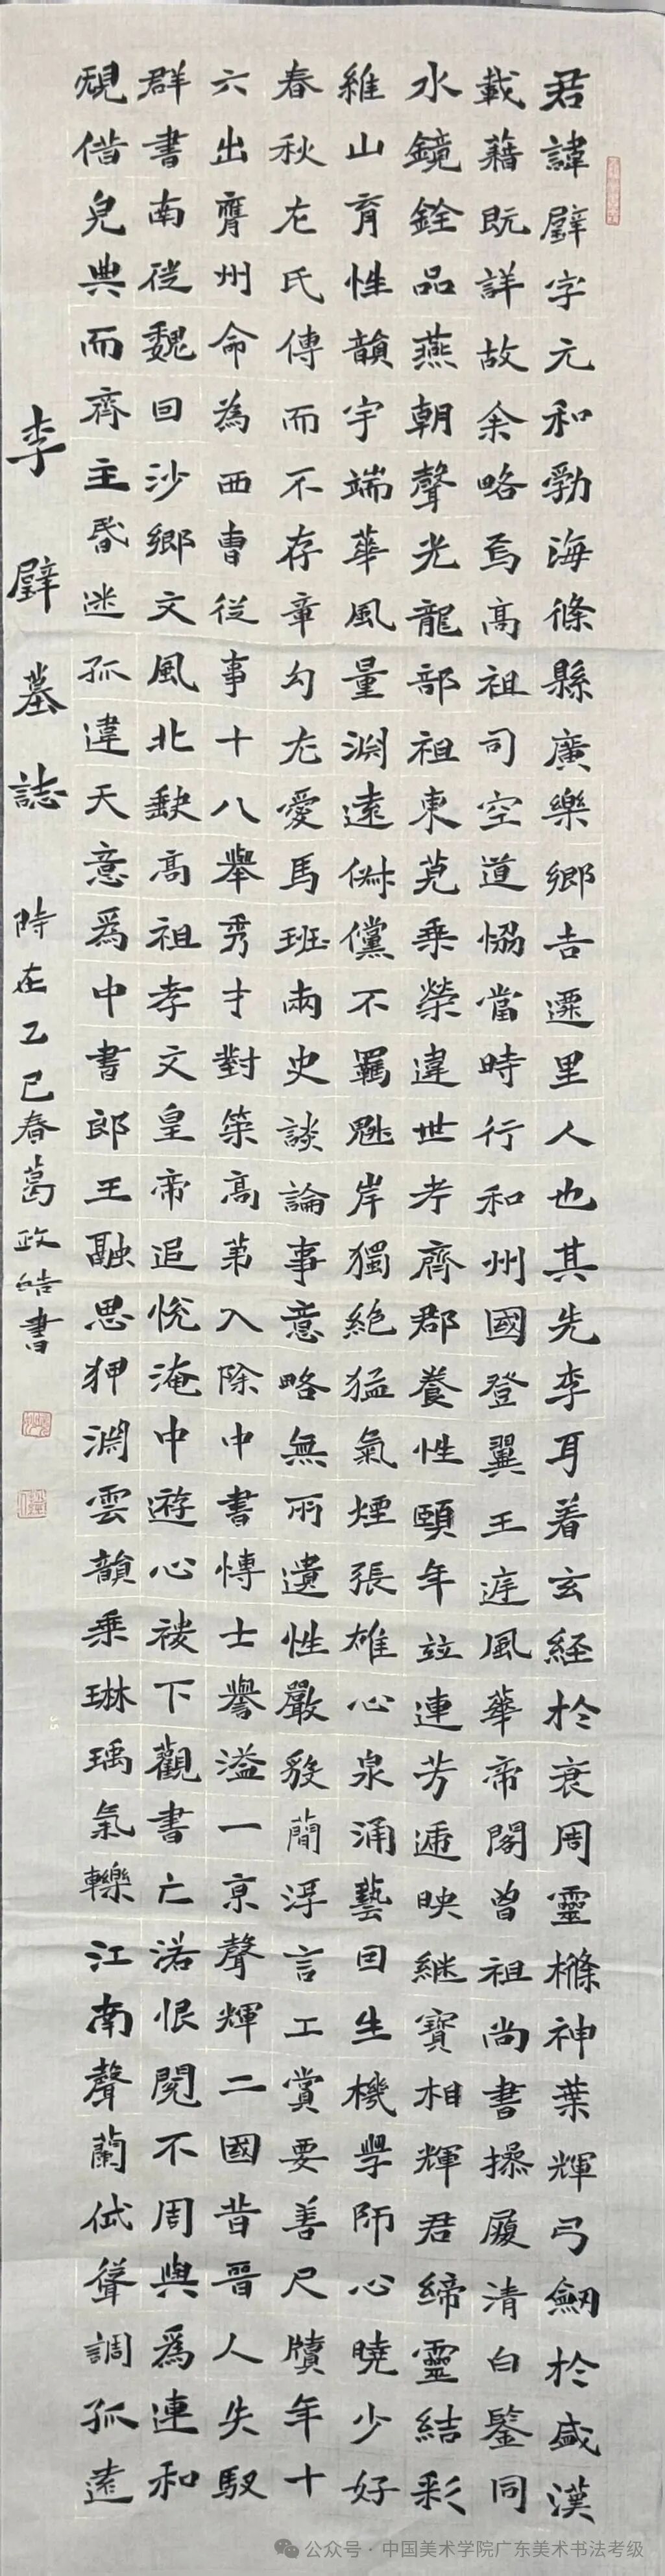 君諱璧字元和勃海條縣廣樂鄉吉遷里人也其先李耳着玄經於衰周靈櫾神葉輝弓劒於盛漢
載藉既詳故余略焉高祖司空道協當時行和州國登翼王庭風華帝閣曾祖尚書操履清白鑒同
水鏡銓品燕朝聲光龍部祖東莞乘榮違世考齊郡養性頤年竝連芳逓映繼寶相輝君締靈結彩
維山育性韻宇端華風量淵遠俶儻不羈魁岸獨絶猛氣煙張雄心泉涌藝因生機學師心曉少好
春秋左氏傳而不存章勾尤愛馬班兩史談論事意略無所遺性嚴毅簡浮言工賞要善尺牘年十
六出膺州命為西曹從事十八舉秀才對策高第入除中書博士譽溢一京聲輝二國昔晋人失馭
群書南徙魏因沙鄉文風北缺高祖孝文皇帝追悅淹中遊心稷下觀書亡落恨閱不周與爲連和
規借完典而齊主昏迷孤違天意爲中書郎王融思狎淵雲韻乘琳瑀氣轢江南聲蘭岱聳調孤遠
李璧墓誌 時在乙巳春葛政皓書
公众号·中国美术学院广东美术书法考级